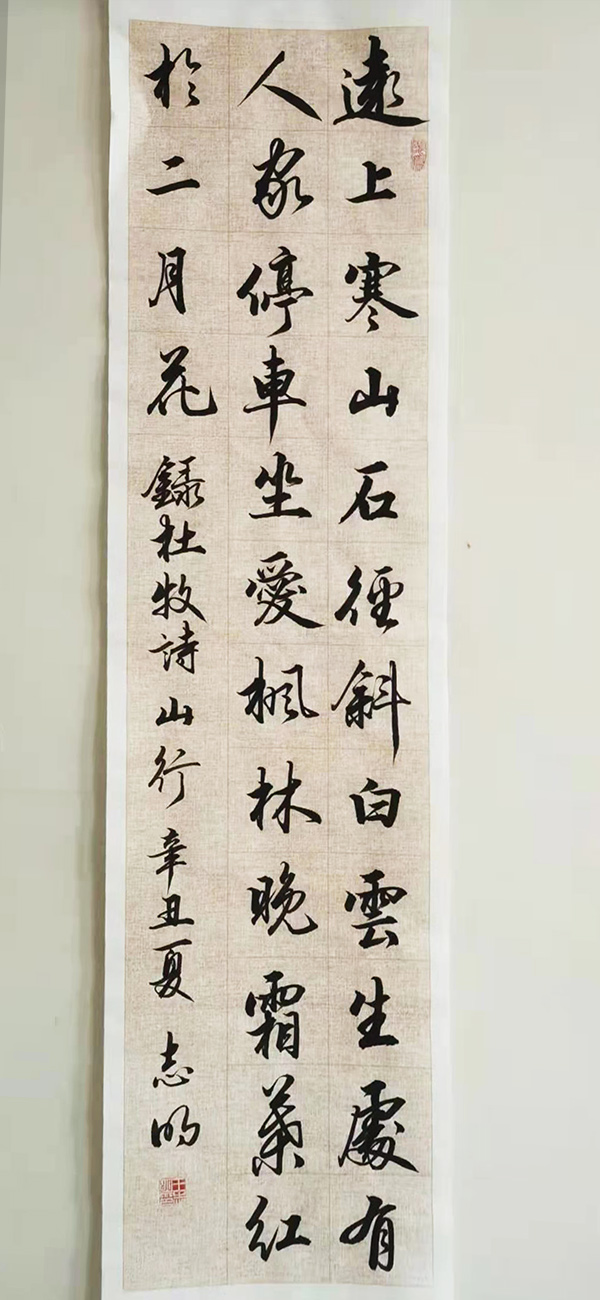 遠上寒山石徑斜白雲生處有
人家停車坐愛楓林晚霜葉紅
於二月花 錄杜牧詩山行 辛丑夏 志明